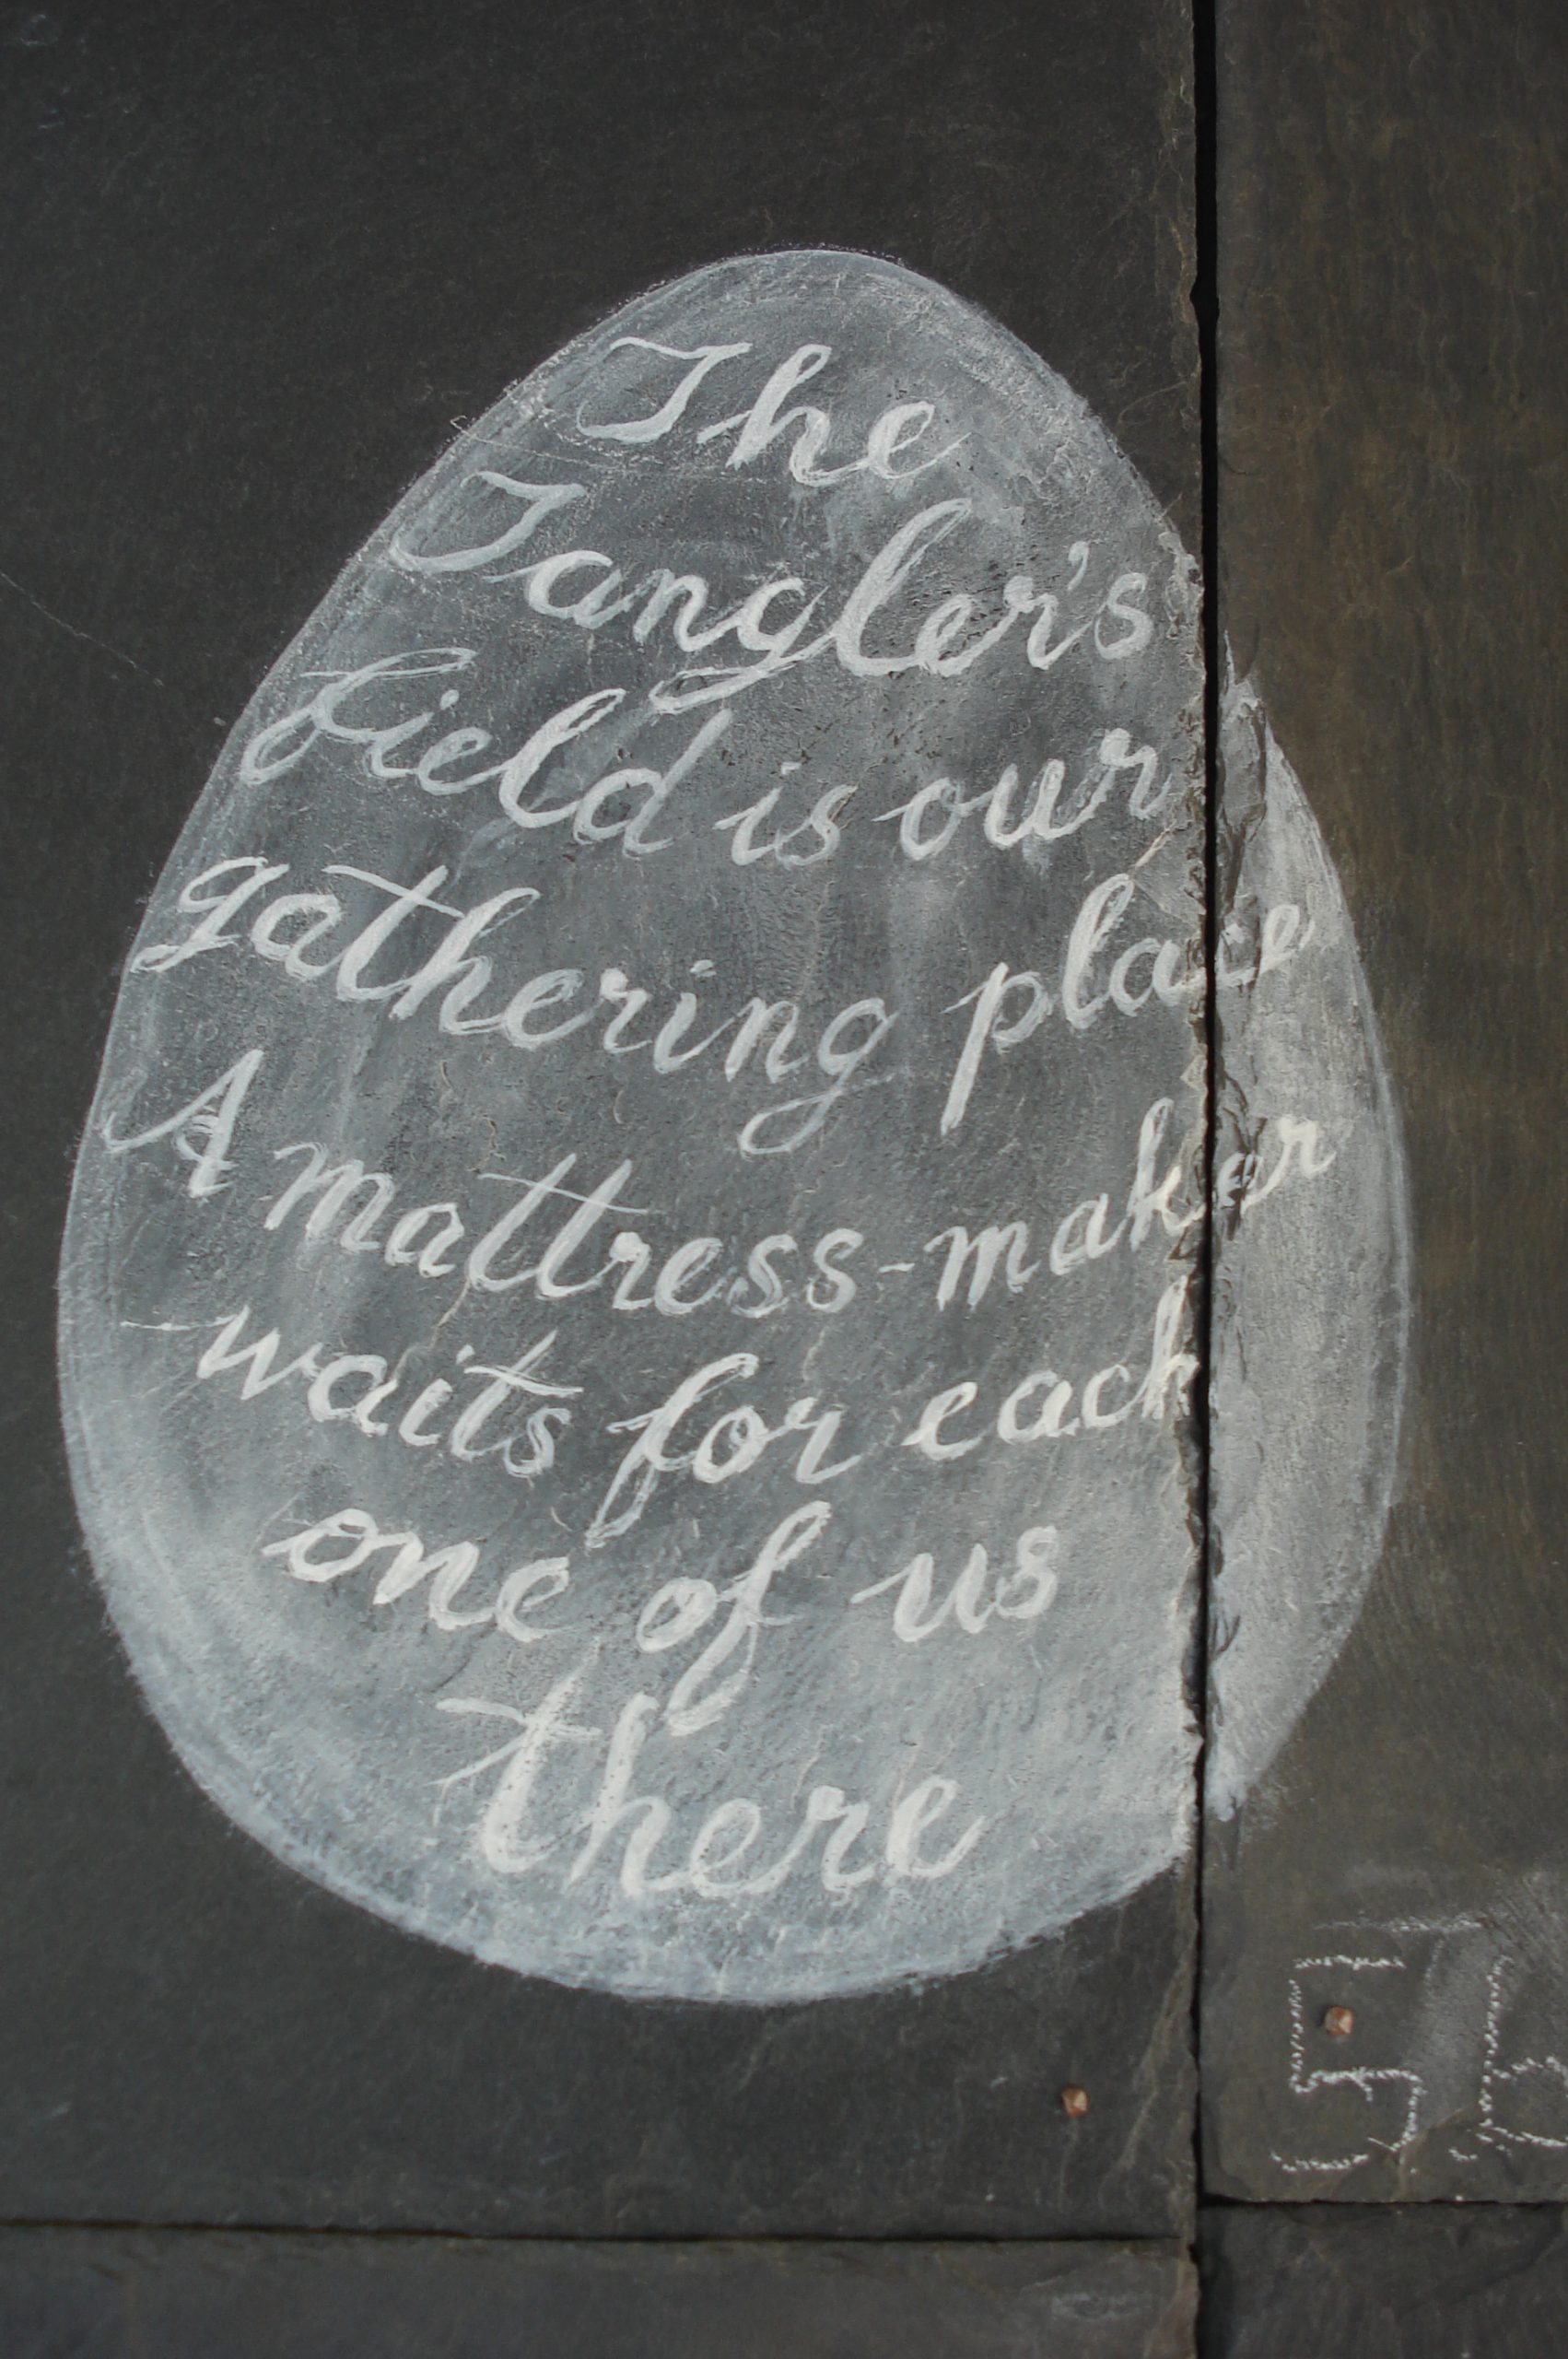 The
Tangler's
field is our
gathering place
A mattress-maker
waits for each
one of us
there